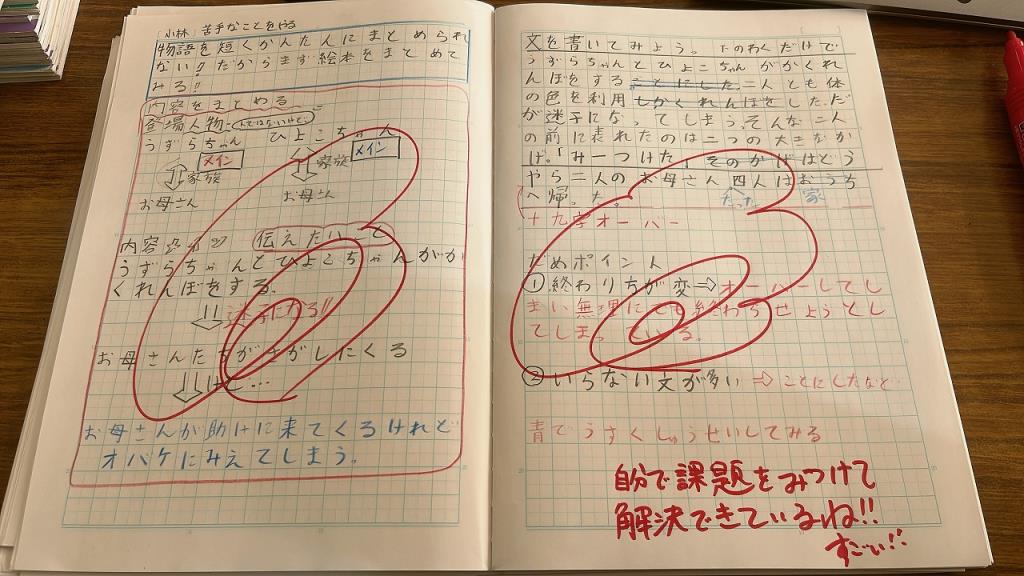 小林 苦手なことをやる
物語を短くかんたんにまとめられ
ない!!だからまず絵本をまとめて
みる!!
内容をまとめる
登場人物:(人ではないけど)
うずらちゃん ひよこちゃん
メイン メイン
家族 家族
お母さん お母さん
内容 伝えたいこと
うずらちゃんとひよこちゃんがか
くれんぼをする。
⇩
お母さんたちがさがしにくる
⇩けど…
お母さんが助けに来てくるけれど
オバケにみえてしまう。
文を書いてみよう。たのわくだけで
うずらちゃんとひよこちゃんがかくれ
んぼをすることにした二人とも体
の色を利用しかくれんぼをした。だ
が迷子になってしまう。そんな二人
の前に表れたのは二つの大きなか
げ。「みーつけた」そのかげはどう
やら二人のお母さん四人はおうち
へ帰った。 家
十九字オーバー
だめポイント
①終わり方が変⇨オーバーしてし
まい無理にでも終わらせようとし
てしまっている。
②いらない文が多い⇨ことにしたなど
青でうすくしゅうせいしてみる
自分で課題をみつけて
解決できているね!!
すごい!!